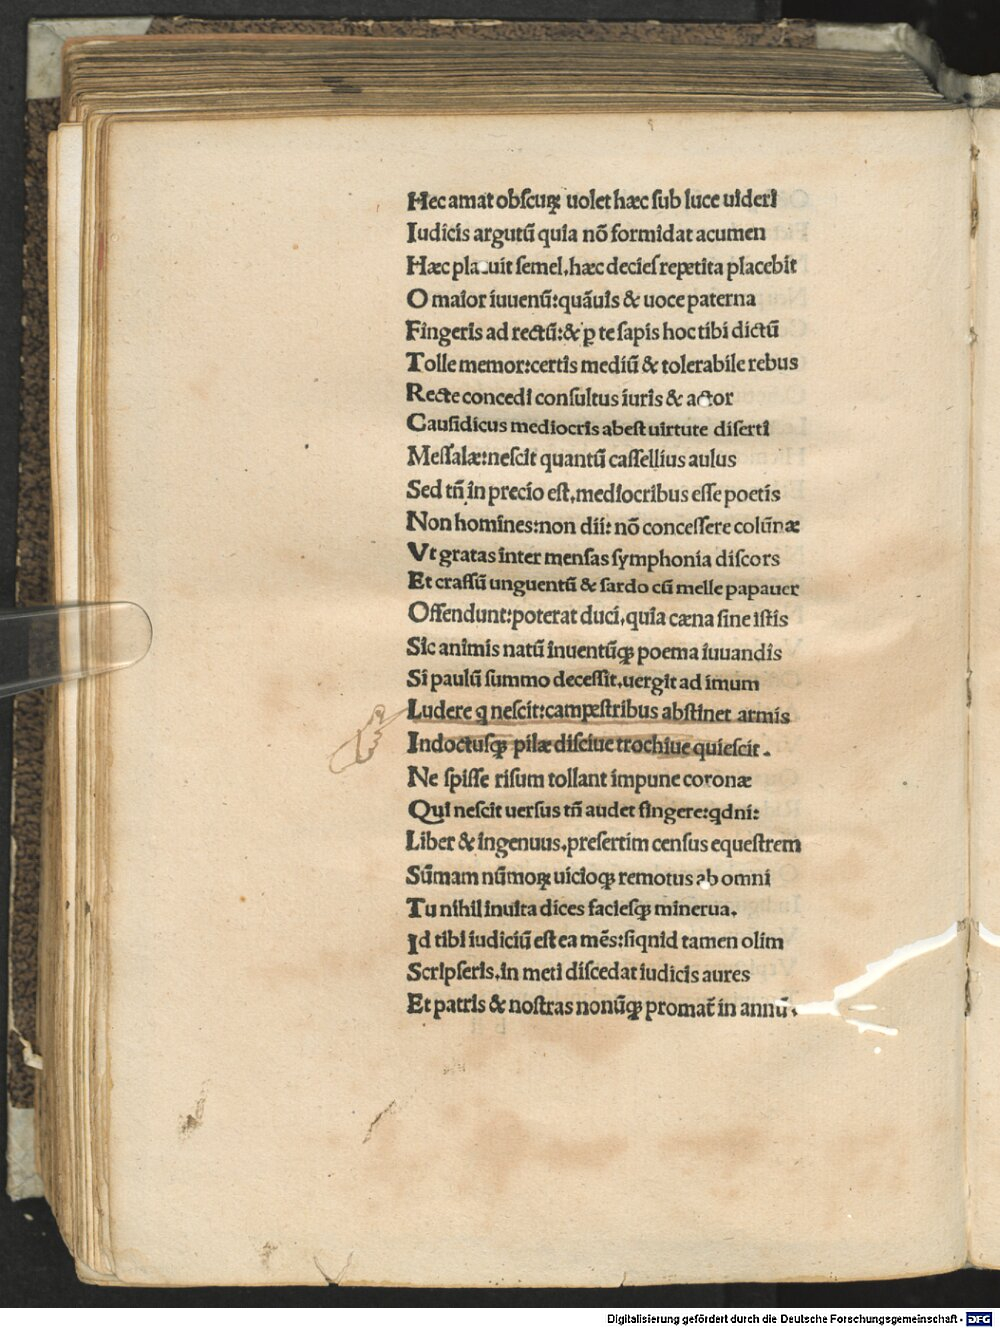 Hec amat obscuꝝ uolet hæc sub luce uideri
Iudicis argutū quia nō formidat acumen
Hæc placuit semel,hæc decies repetita placebit
O maior iuuenū:quāuis & uoce paterna
Fingeris ad rectū:& ꝑ te sapis hoc tibi dictū
Tolle memor:certis mediū & tolerabile rebus
Recte concedi consultus iuris & actor
Causidicus mediocris abest uirtute diserti
Messalæ:nescit quantū cassellius aulus
Sed tñ in precio est,mediocribus esse poetis
Non homines:non dii: nō concessere colūnæ
Vt gratas inter mensas symphonia discors
Et crassū unguentū & sardo cū melle papauer
Offendunt:poterat duci,quia cæna sine istis
Sic animis natū inuentūqꝫ poema iuuandis
Si paulū summo decessit,uergit ad imum
Ludere q nescit:campestribus abstinet armis
Indoctusqꝫ pilæ disciue trochiue quiescit.
Ne spisse risum tollant impune coronæ
Qui nescit uersus tñ audet fingere:qdni:
Liber & ingenuus,presertim census equestrem
Sūmam nūmoꝝ uicioqꝫ remotus ab omni
Tu nihil inuita dices faciesqꝫ minerua.
Id tibi iudiciū est ea mēs:siqnid tamen olim
Scripseris,in meti discedat iudicis aures
Et patris & nostras nonūqꝫ promat̃ in annū.
Digitalisierung gefördert durch die Deutsche Forschungsgemeinschaft - DFG